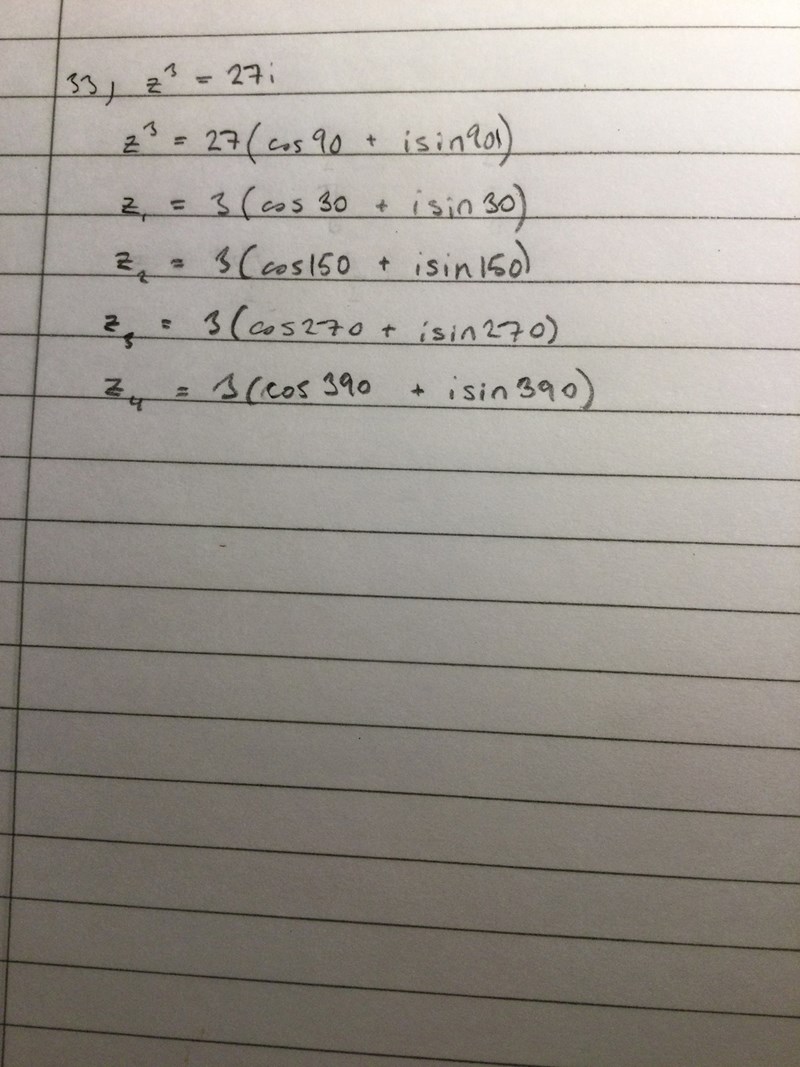 33, z³ = 27i
z³ = 27(cos 90 + isin90)
z₁ = 3(cos 30 + isin 30)
z₂ = 3(cos150 + isin150)
z₃ = 3(cos270 + isin270)
z₄ = 3(cos 390 + isin390)